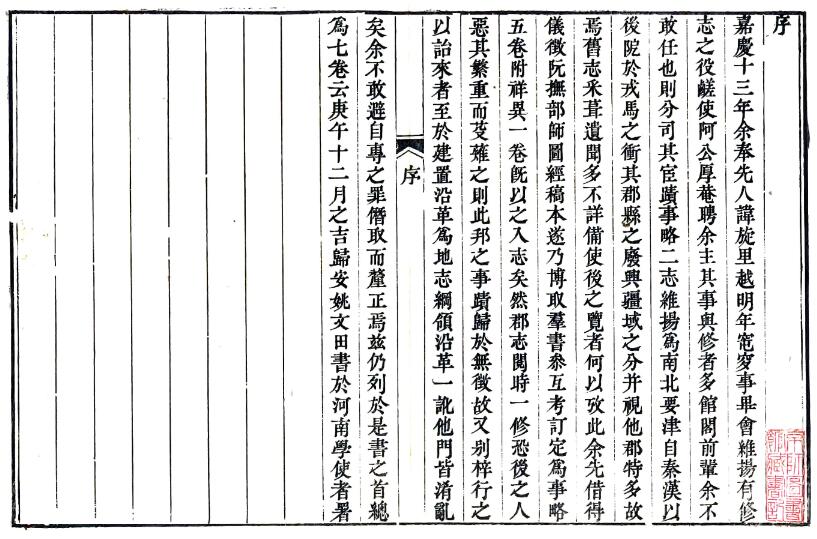 序
嘉慶十三年余奉先人諱旋里越明年窀穸事畢會維揚有修
志之役鹺使阿公厚菴聘余主其事與修者多館閣前輩余不
敢任也則分司其宦蹟事略二志維揚爲南北要津自秦漢以
後阨於戎馬之衝其郡縣之廢興疆域之分并視他郡特多故
焉舊志采葺遺聞多不詳備使後之覽者何以攷此余先借得
儀徵阮撫部師圖經稿本遂乃博取羣書叅互考訂定爲事略
五卷附祥異一卷旣以之入志矣然郡志閱時一修恐後之人
惡其繁重而芟薙之則此邦之事蹟歸於無徵故又别梓行之
以詒來者至於建置沿革爲地志綱領沿革一訛他門皆淆亂
序
矣余不敢避自專之罪僭取而釐正焉茲仍列於是書之首總
爲七卷云庚午十二月之吉歸安姚文田書於河南學使者署